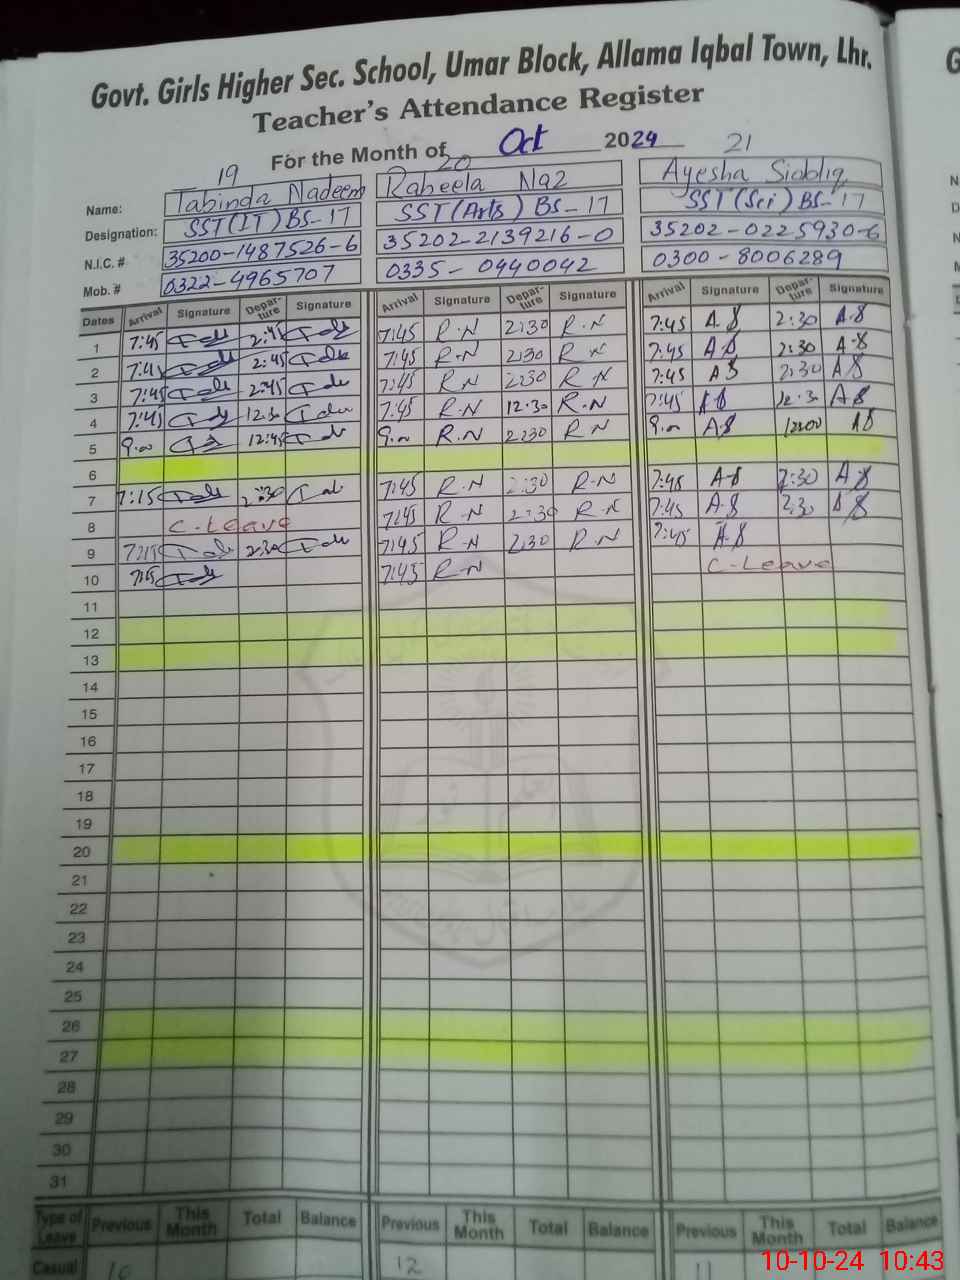 Govt. Girls Higher Sec. School, Umar Block, Allama Iqbal Town, Lhr.
Teacher's Attendance Register
For the Month of Oct 2024
19 20 21
Name: Tabinda Nadeem Raheela Naz Ayesha Siddiq
Designation: SST(IT) BS-17 SST(Arts) BS-17 SST(Sci) BS-17
N.I.C. # 35200-1487526-6 35202-2139216-0 35202-0225930-6
Mob. # 0322-4965707 0335-0440042 0300-8006289
Dates Arrival Signature Depar-ture Signature Arrival Signature Depar-ture Signature Arrival Signature Depar-ture Signature
1 7:45 2:45 7:45 R.N 2:30 R.N 7:45 A.S 2:30 A.S
2 7:45 2:45 7:45 R.N 2:30 R.N 7:45 A.S 2:30 A.S
3 7:45 2:45 7:45 R.N 2:30 R.N 7:45 A.S 2:30 A.S
4 7:45 12:30 7:45 R.N 12:30 R.N 7:45 A.S 12:30 A.S
5 9:00 12:45 9:00 R.N 2:30 R.N 9:00 A.S 12:00 A.S
6
7 7:15 2:30 7:45 R.N 2:30 R.N 7:45 A.S 2:30 A.S
8 C-Leave 7:45 R.N 2:30 R.N 7:45 A.S 2:30 A.S
9 2:30 7:45 R.N 2:30 R.N 7:45 A.S
10 7:45 R.N C-Leave
11
12
13
14
15
16
17
18
19
20
21
22
23
24
25
26
27
28
29
30
31
Type of Leave Previous This Month Total Balance Previous This Month Total Balance Previous This Month Total Balance
Casual 10 12 11
10-10-24 10:43